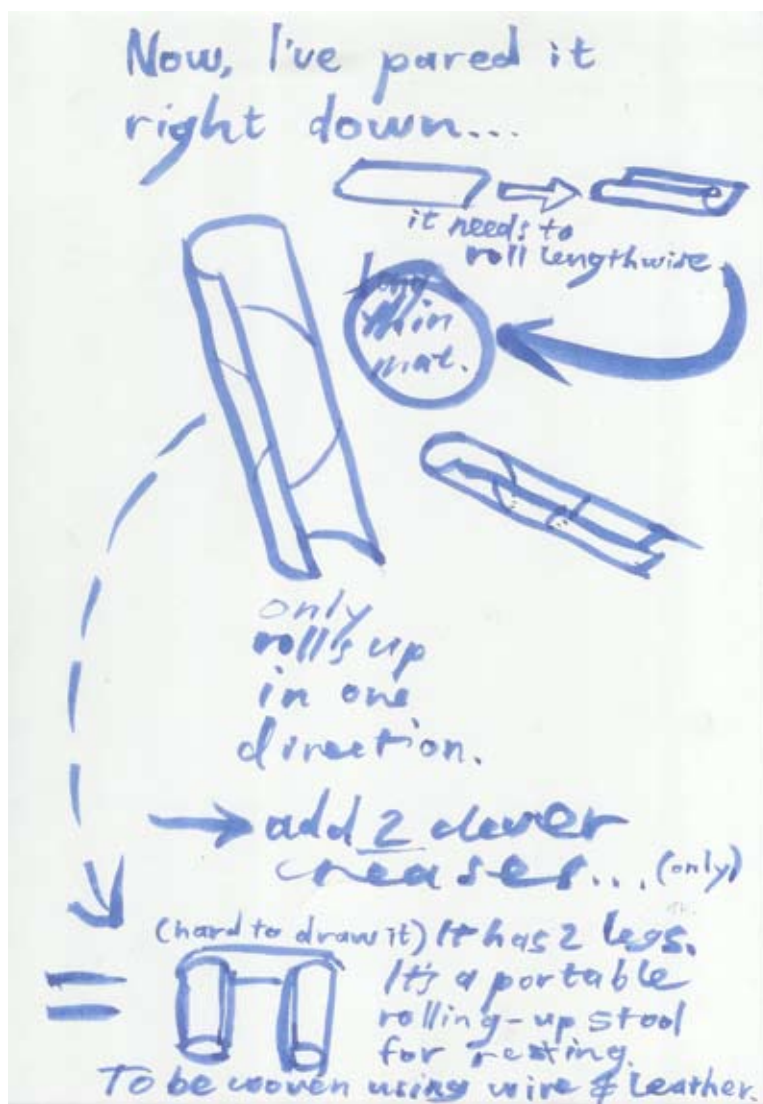 Now, I've pared it
right down...
it needs to
roll lengthwise.
Long
thin
mat.
only
rolls up
in one
direction.
add 2 clever
creases... (only)
(hard to draw it) It has 2 legs.
It's a portable
rolling-up stool
for resting.
To be woven using wire & leather.